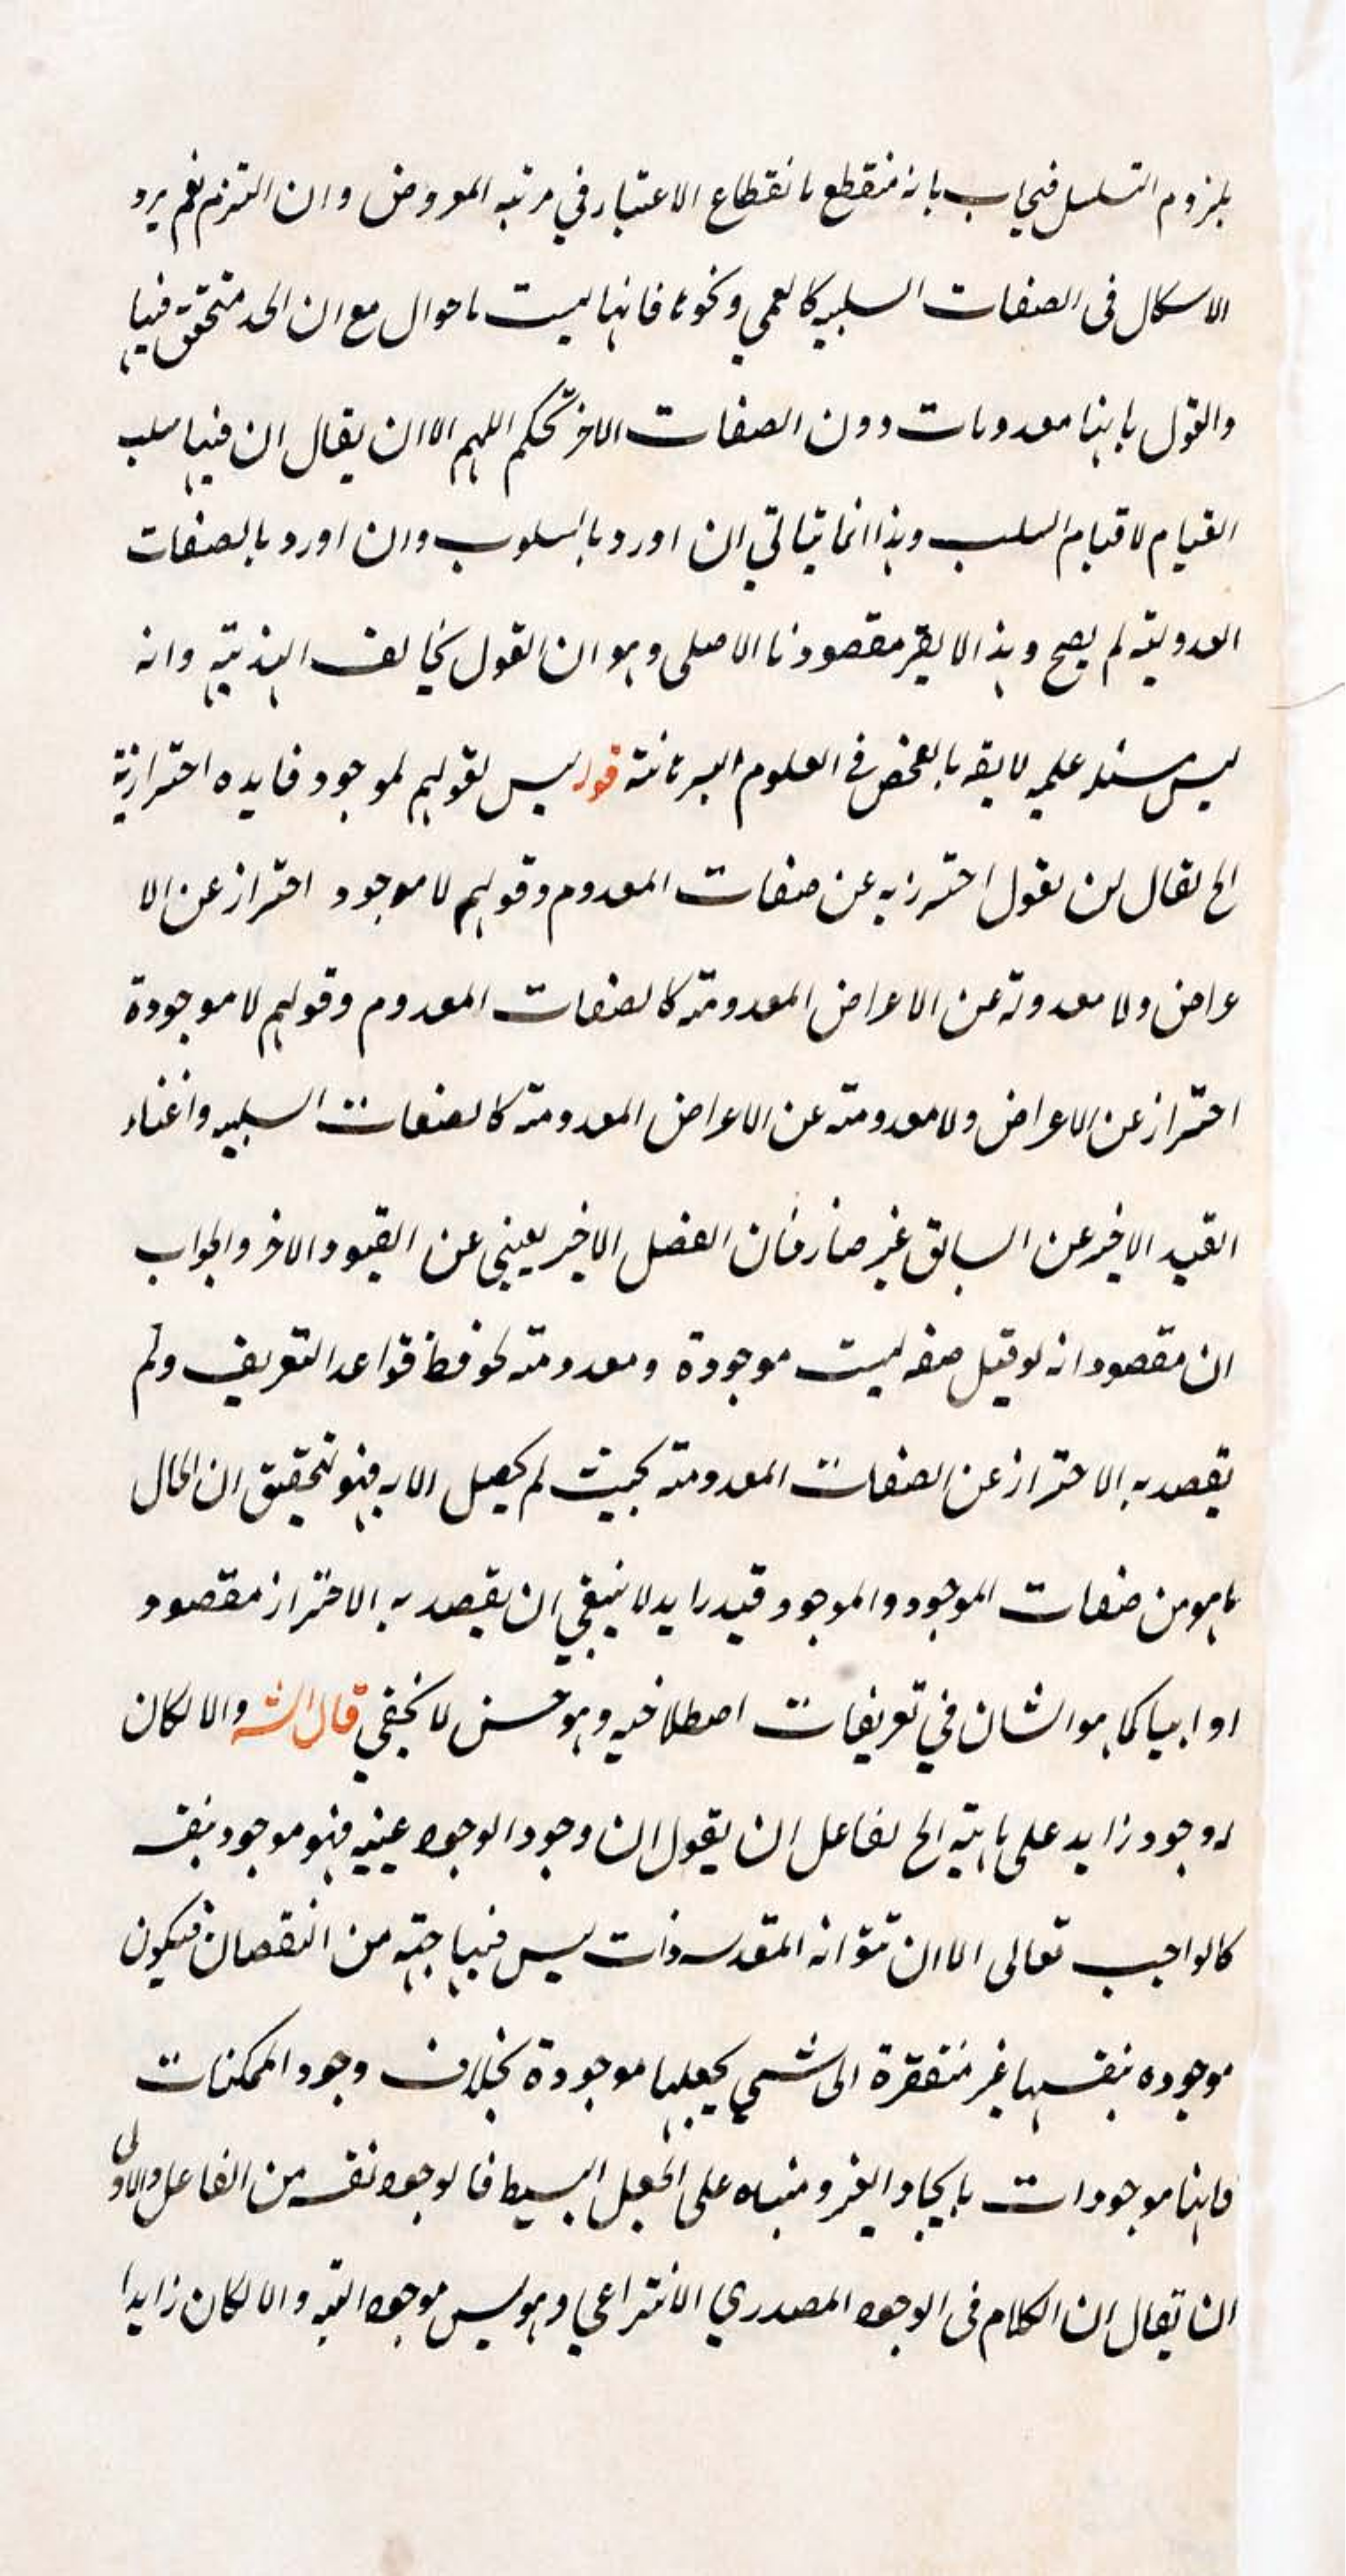 بلزوم التسلسل فيجاب بانه منقطع بانقطاع الاعتبار في مرتبه المعروض وان التزم نعم يرد
الاسكال فى الصفات السلبيه كالعمي ونحوها فانها ليست باحوال مع ان الحد متحقق فيها
والقول بانها معدومات دون الصفات الاخر تحكم اللهم الا ان يقال ان فيها سلب
القيام لا قيام السلب وهذا انما يتاتي ان اورد بالسلوب وان اورد بالصفات
العدوليته لم يصح وهذا لا يضر مقصودنا الاصلى وهو ان القول يخالف وانه
ليس علميه بالفحص في العلوم قوله ليس لقولهم لموجود فايده احترازية
الح يقال لمن يقول احترز به عن صفات المعدوم وقولهم لا موجود احتراز عن الا
عراض ولا معدومة عن الاعراض المعدومته كالصفات المعدوم وقولهم لا موجودة
احتراز عن الاعراض ولا معدومته عن الاعراض المعدومته كالصفات السلبيه واغناء
القيد الاخير عن السابق غير ضار فان الفصل الاخير يغني عن القيود الاخر والجواب
ان مقصود انه لو قيل صفه ليست موجودة ومعدومته قواعد التعريف ولم
يقصد به الاحتراز عن الصفات المعدومته بحيث لم يحصل الا به فهو لتحقيق ان الحال
ما هو من صفات الموجود والموجود قيد زايد لا ينبغي ان يقصد به الاحتراز مقصود
او كما هو الشان في تعريفات اصطلاحيه وهو حسن لا يخفي قال الشه والا لكان
له وجود زايد على ماهيته الح لفاعل ان يقول ان وجود الوجود عينيه فهو موجود بنفسه
كالواجب تعالى الا ان ذات ليس فيها من النقصان فيكون
موجوده بنفسها غير منفقرة الى شي يجعلها موجودة بخلاف وجود الممكنات
فانها موجودات بايجاد الغير ومنباه على الجعل البسيط فالوجود نفسه من الفاعل والاولى
ان يقال ان الكلام فى الوجود المصدري الانتزاعي وهو ليس موجود البته والا لكان زايدا